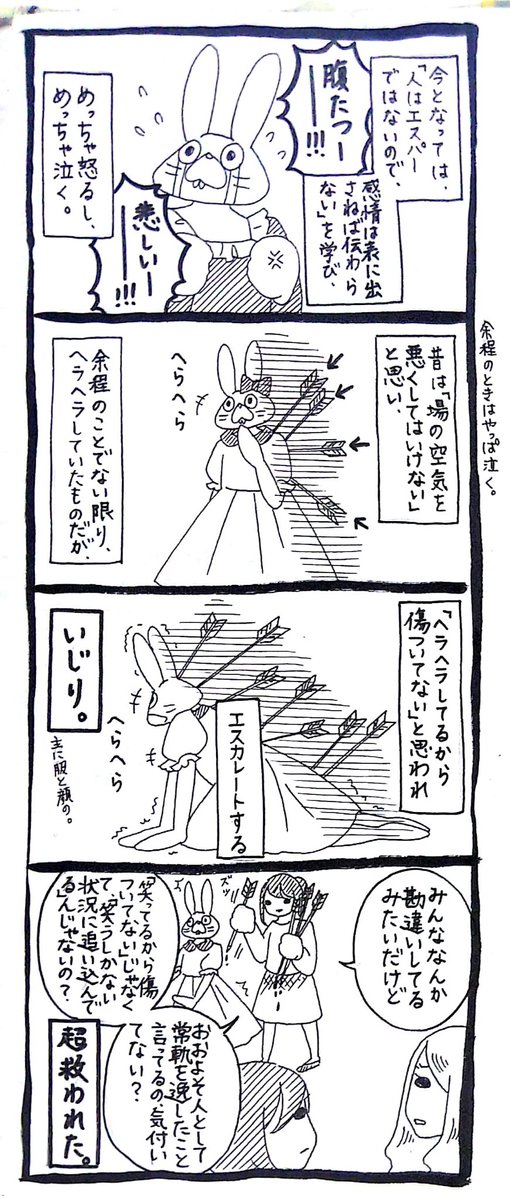 今となっては、
「人はエスパー
ではないので、
感情は表に出
さねば伝わら
ない」を学び、
腹たつー
ーー!!!
めっちゃ怒るし、
めっちゃ泣く。
悲しいー
ーー!!!
余程のときはやっぱ泣く。
昔は「場の空気を
悪くしてはいけない」
と思い、
へらへら
余程のことでない限り、
ヘラヘラしていたものだが、
「ヘラヘラしてるから
傷ついてない」と思われ
エスカレートする
いじり。
主に服と顔の。
へらへら
みんななんか
勘違いしてる
みたいだけど
ズッ
ズッ
「笑ってるから傷
ついてない」じゃなく
て「笑うしかない
状況に追い込んで
る」んじゃないの?
おおよそ人として
常軌を逸したこと
言ってるの、気付い
てない?
超救われた。